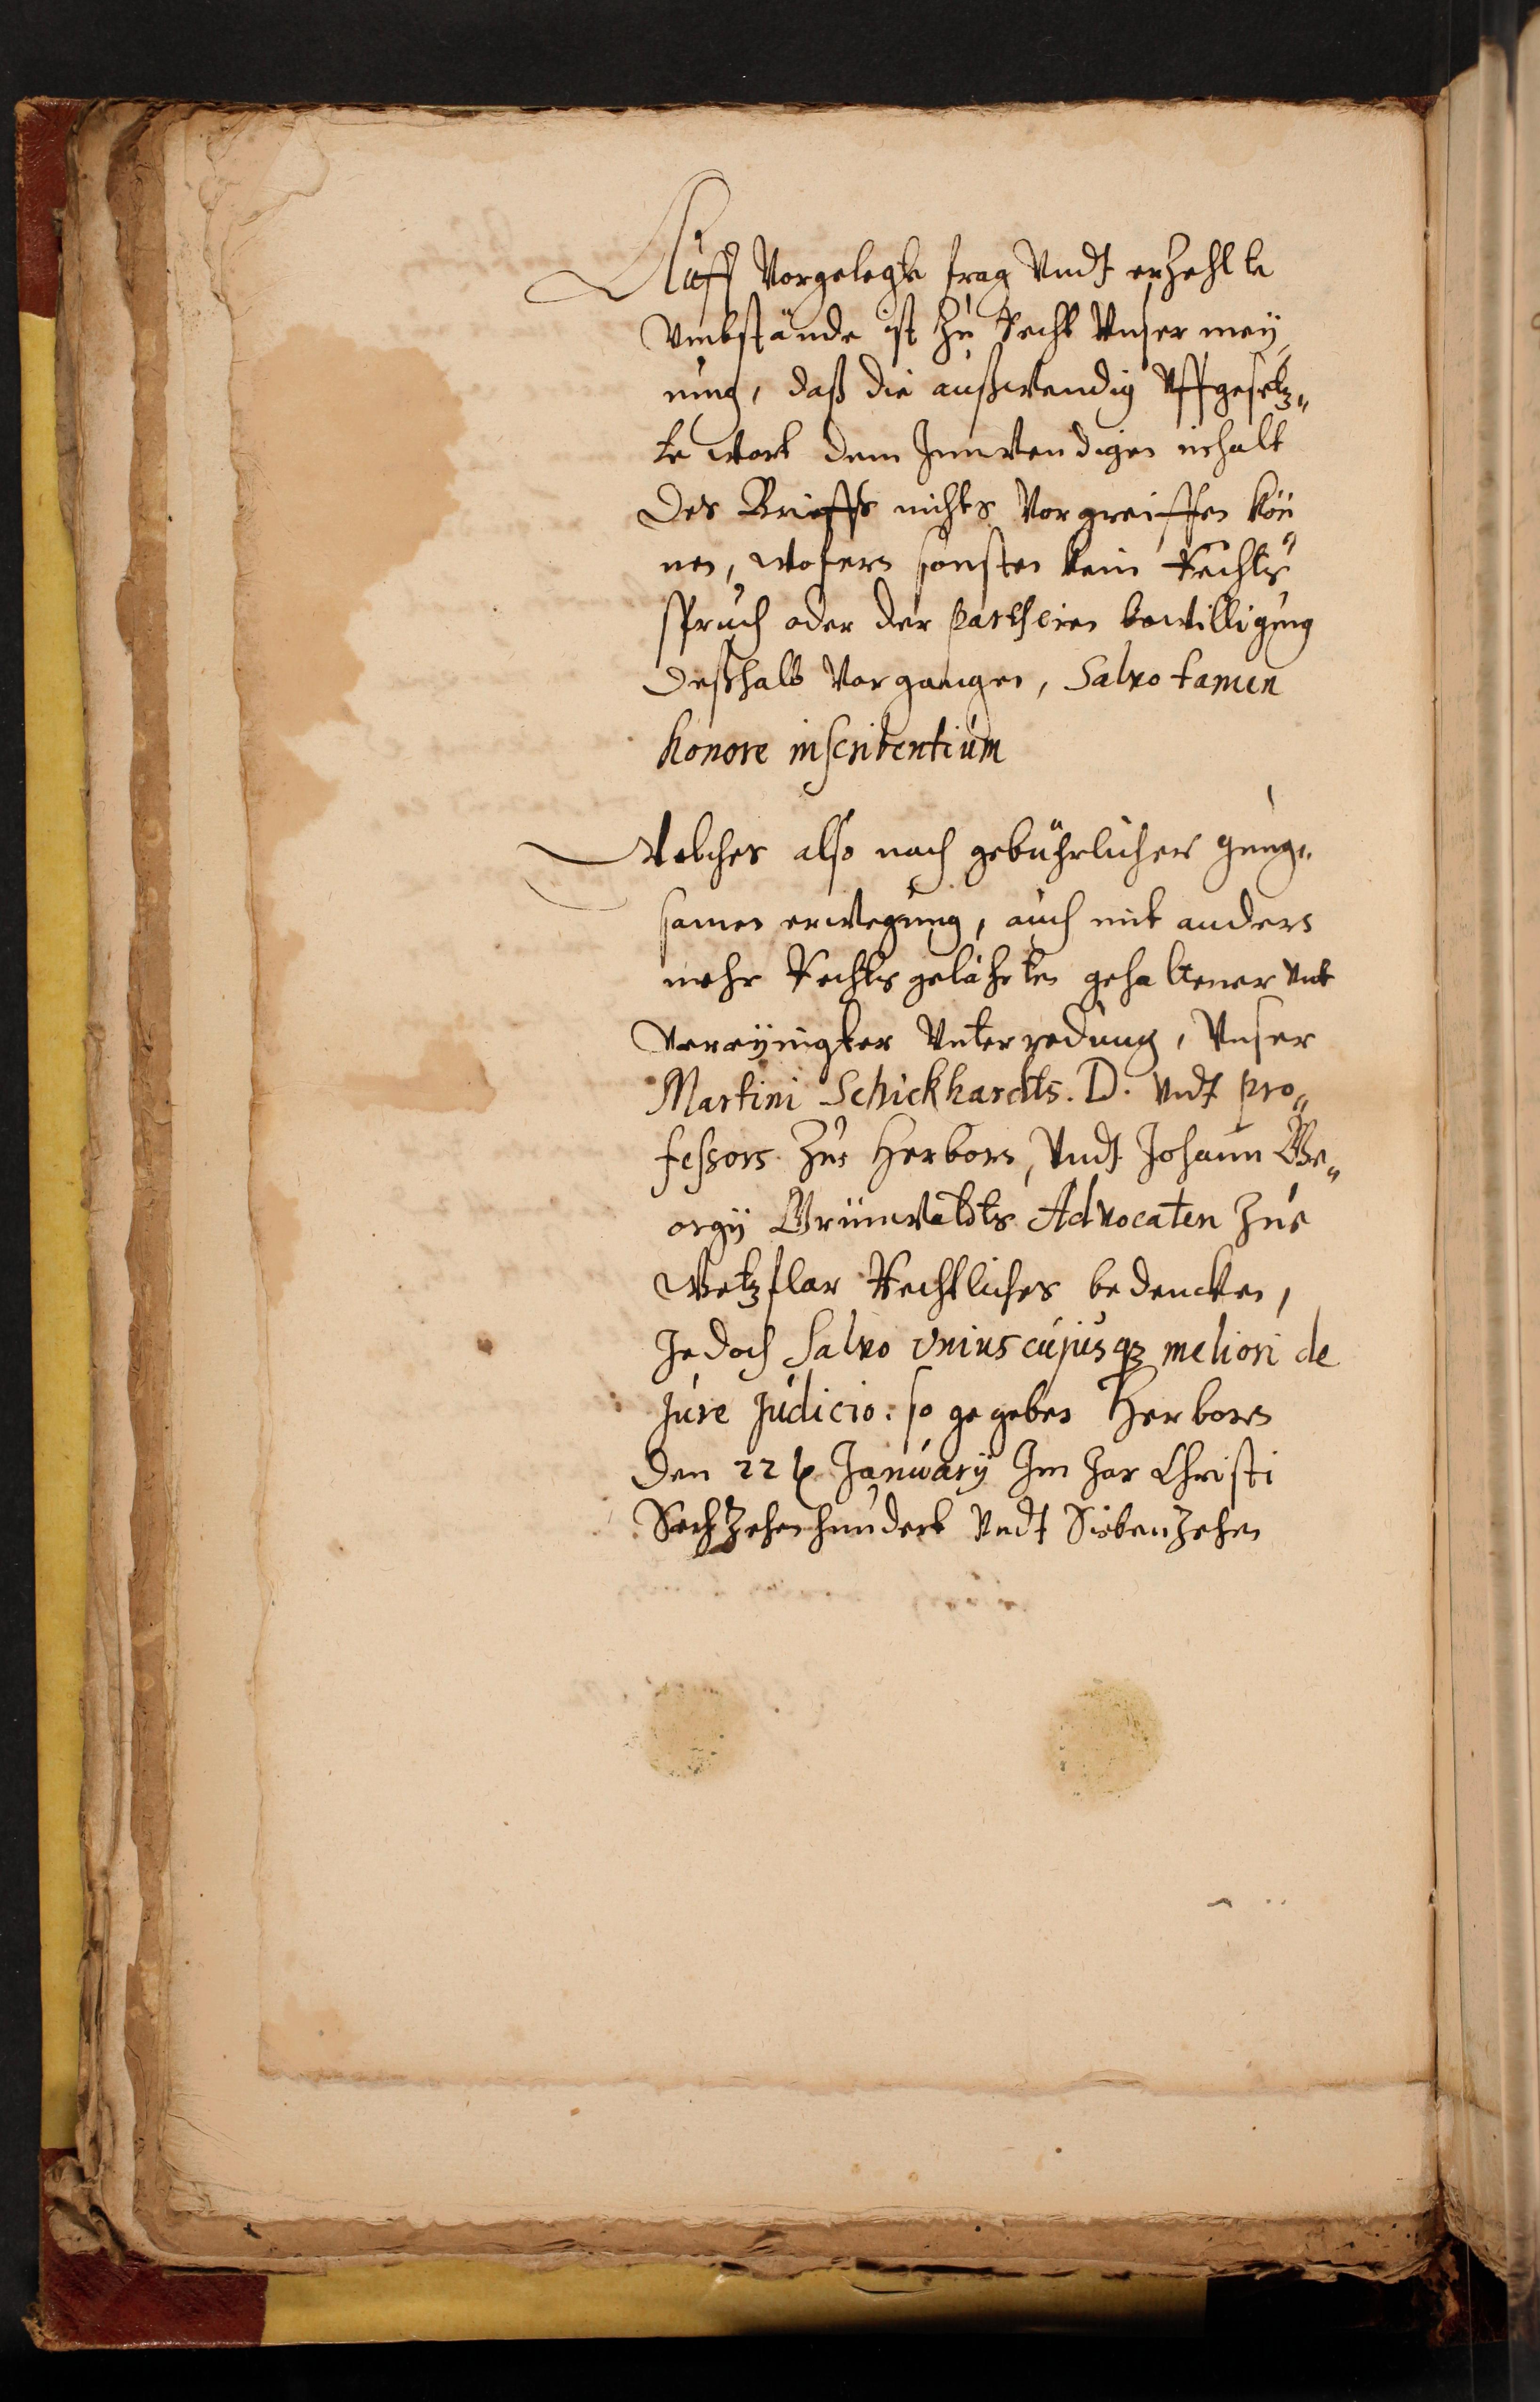 Auff Vorgelegte frag Vndt erzehlte
Vmbstände ist zu Recht Vnser mey„
nung, daß die außwendig Vffgesetz„
te wort dem Innwendigen inhalt
Des Brieffs nichts Vorgreiffen kön„
nen, wofern sonsten kein Rechts„
spruch oder der partheien bewilligung
Deßhalb Vorgangen, Salvo tamen
honore inscribentium
Welches also nach gebührlicher gnug„
samen erwegung, auch mit andern
mehr Rechtsgelährten gehaltener Vnd
Vereynigter Vnterredung, Vnser
Martini Schickhardts. D. Vndt pro„
fessors zue Herborn, Vndt Johann Ge„
orgy Grünwaldts Advocaten zue
Wetzflar Rechtliches bedencken,
Jedoch Salvo Vnius cujusq3 meliori de
jure judicio: so gegeben Herborn
Den 22 Januarij Im Jar Christi
Sechzehenhundert Vndt Siebenzehen